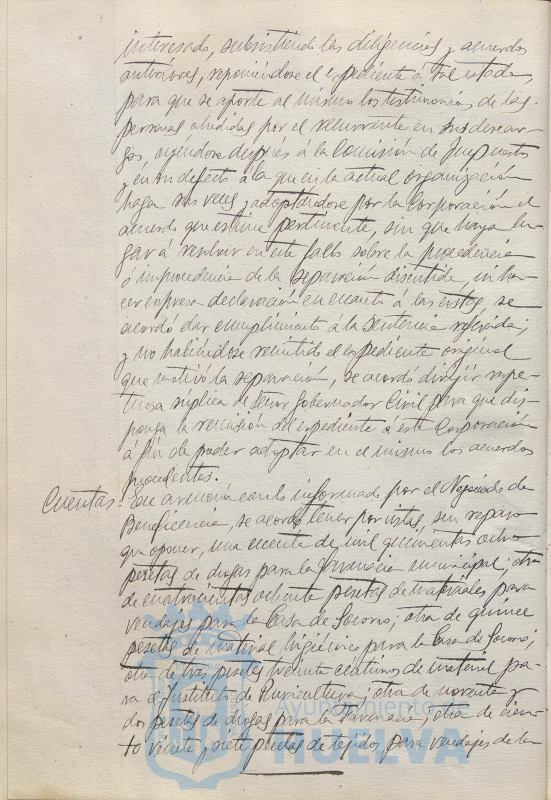 interesado, subsistiendo las diligencias y acuerdos
anteriores, reponiéndose el expediente á tal estado
para que se aporte al mismo los testimonios de las
personas aludidas por el recurrente en sus descar-
gos, oyéndose después á la Comisión de Impuestos
y en su defecto á la que en la actual organización
haga sus veces y adoptándose por la Corporación el
acuerdo que estime pertinente, sin que haya lu-
gar á resolver en este fallo sobre la procedencia
ó improcedencia de la separación discutida, ni ha-
cer expresa declaración en cuanto á las costas, se
acordó dar cumplimiento á la sentencia referida;
y no habiéndose remitido el expediente original
que motivó la separación, se acordó dirigir respe-
tuosa súplica al Señor Gobernador Civil para que dis-
ponga la remisión del expediente á esta Corporación
á fin de poder adoptar en el mismo los acuerdos
procedentes.
Cuentas. En armonía con lo informado por el Negociado de
Beneficencia, se acordó tener por vistas, sin reparo
que oponer, una cuenta de mil quinientas ocho
pesetas de drogas para la Farmacia municipal; otra
de cuatrocientas ochenta pesetas de materiales para
vendajes para la Casa de Socorro; otra de quince
pesetas de material higiénico para la Casa de Socorro;
otra de tres pesetas treinta céntimos de material pa-
ra el Instituto de Puericultura; otra de noventa y
dos pesetas de drogas para la Farmacia; otra de cien-
to veinte y siete pesetas de tejidos para vendajes de la
Ayuntamiento de
HUELVA